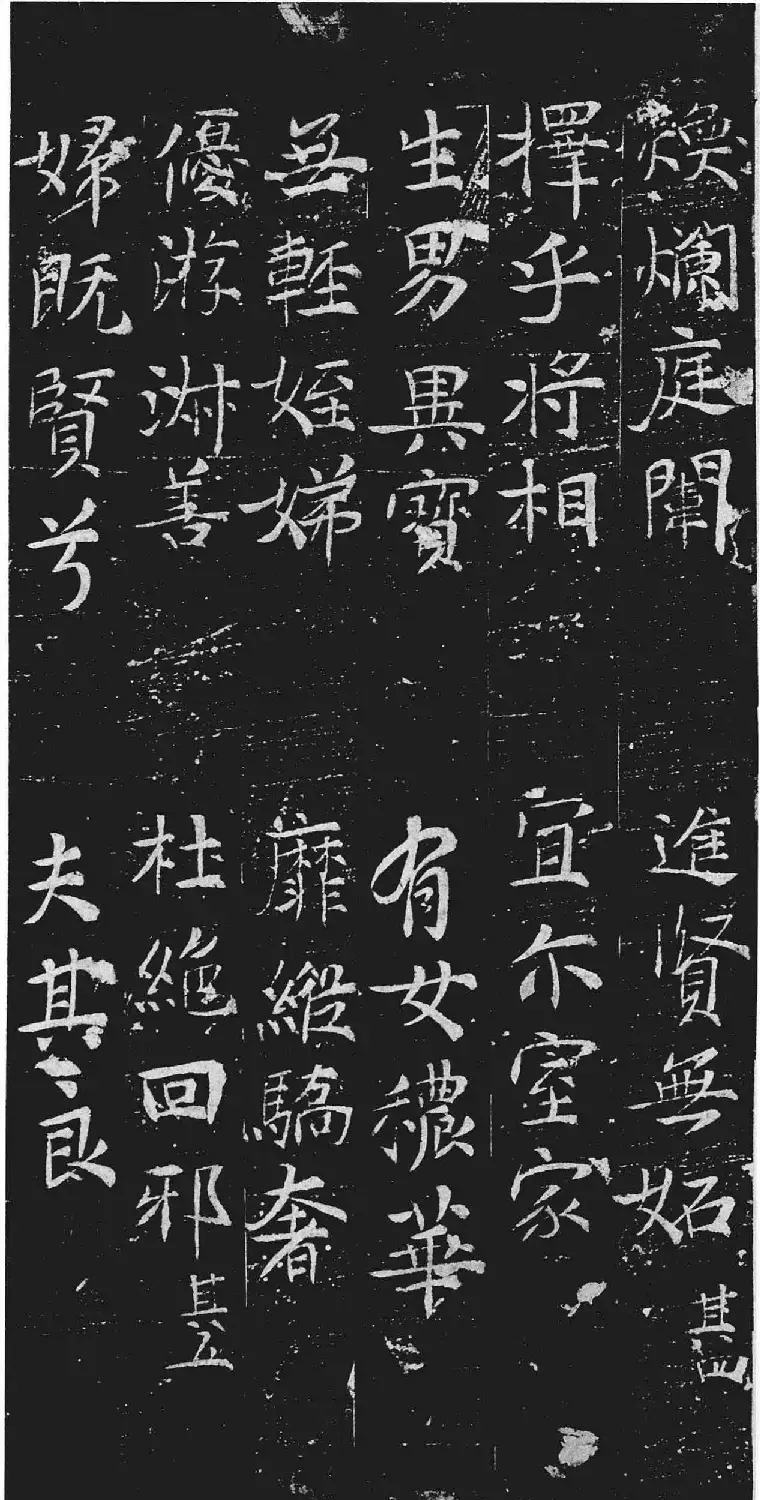 煥爛庭闈 進賢無妬 其四
擇乎將相 宜尒室家
生男異寶 有女穠華
無輕姪娣 靡縱驕奢
優游淑善 杜絶回邪 其五
婦既賢兮 夫其良